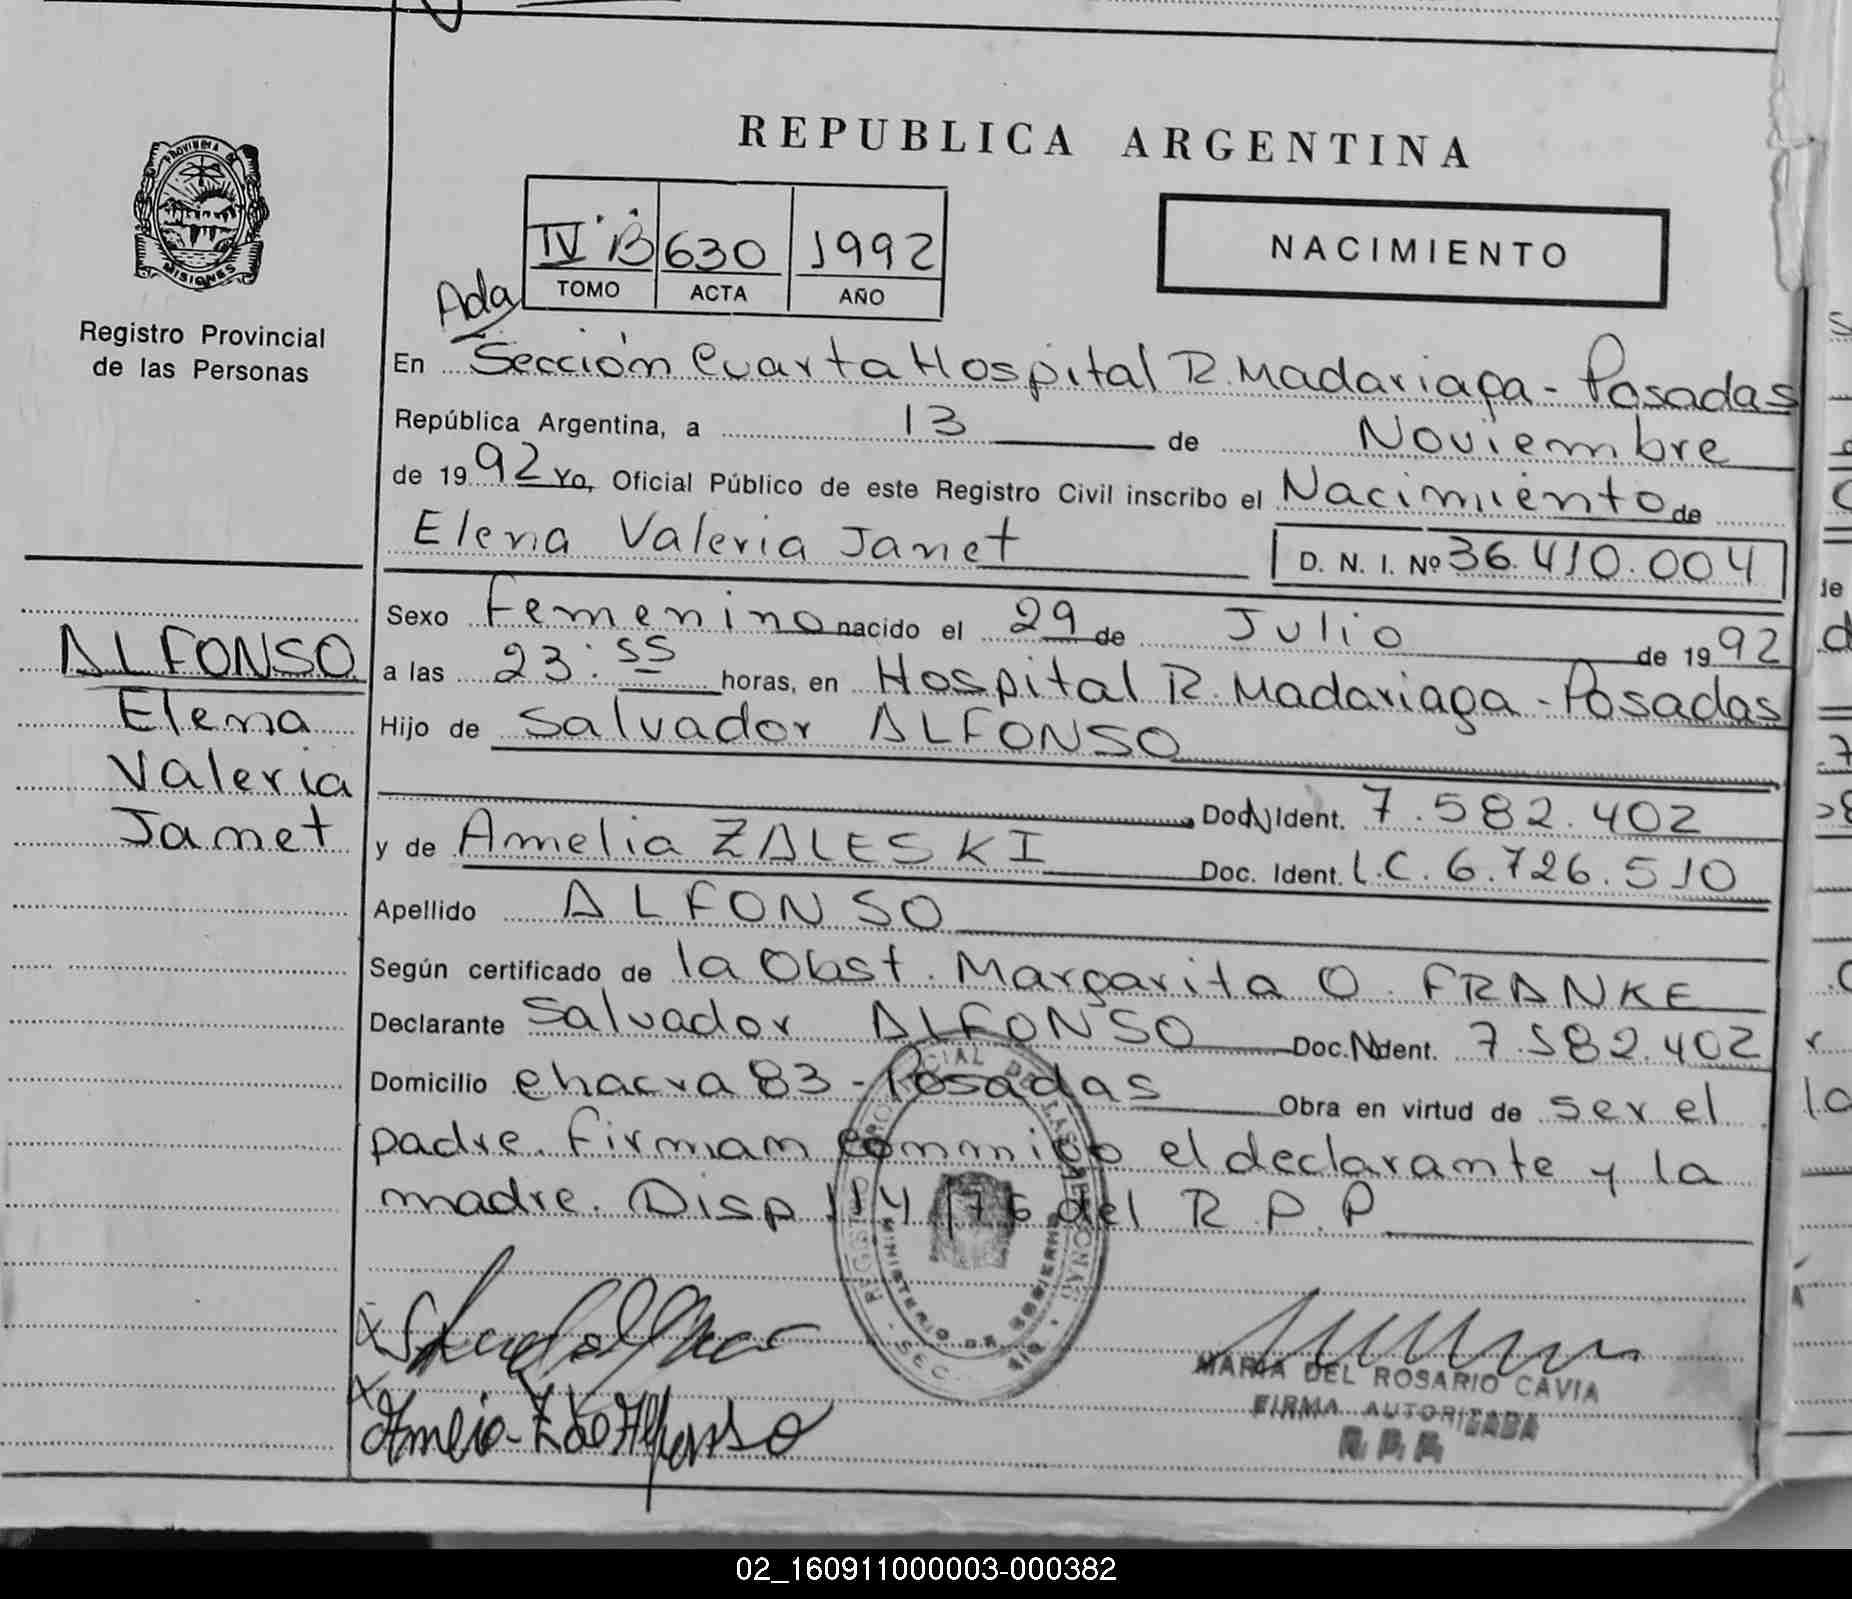 REPUBLICA ARGENTINA
PROVINCIA DE
MISIONES
Registro Provincial
de las Personas
IV "B" 630 1992
TOMO ACTA AÑO
NACIMIENTO
Ada
En Sección Cuarta Hospital R. Madariaga - Posadas
República Argentina, a 13 de Noviembre
de 1992 Yo, Oficial Público de este Registro Civil inscribo el Nacimiento de
Elena Valeria Janet D. N. I. Nº 36.410.004
Sexo Femenino nacido el 29 de Julio de 1992
a las 23:55 horas, en Hospital R. Madariaga - Posadas
Hijo de Salvador ALFONSO
Doc. Ident. 7.582.402
y de Amelia ZALESKI Doc. Ident. L.C. 6.726.510
Apellido ALFONSO
Según certificado de la Obst. Margarita O. FRANKE
Declarante Salvador ALFONSO Doc. Ident. 7.582.402
Domicilio chacra 83 - Posadas Obra en virtud de ser el
padre. Firman conmigo el declarante y la
madre. Disp 114/76 del R.P.P
ALFONSO
Elena
Valeria
Janet
REGISTRO PROVINCIAL DE LAS PERSONAS
MINISTERIO DE GOBIERNO
SEC
Amelia Z de Alfonso
MARIA DEL ROSARIO CAVIA
FIRMA AUTORIZADA
02_160911000003-000382